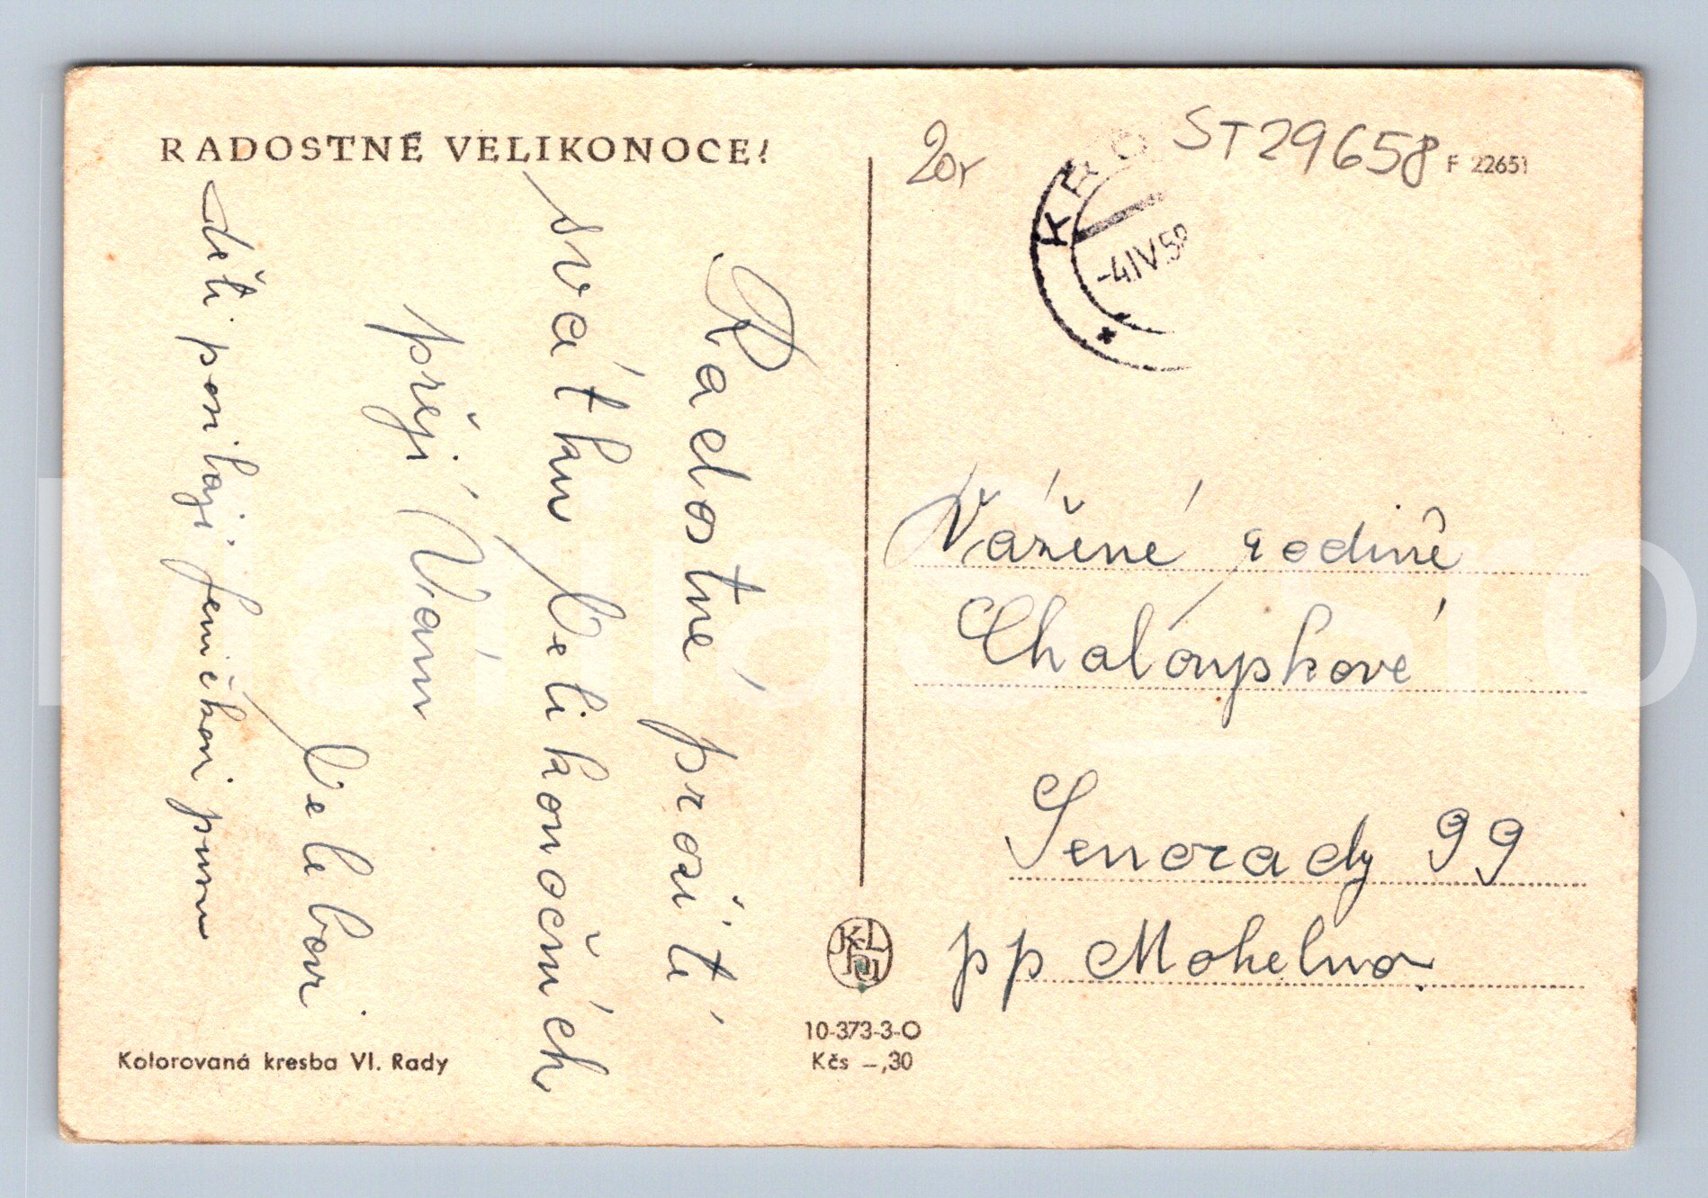 RADOSTNÉ VELIKONOCE!
Radostné prožití
svátku Velikonočních
přeji Vám
Velebovi
děti posílají Jeníčkovi
20,-
ST29658
F 22651
KRO
-4.IV.58
Vážené rodině
Chaloupkové
Senorady 99
pp Mohelno
KLHU
10-373-3-O
Kčs –,30
Kolorovaná kresba Vl. Rady